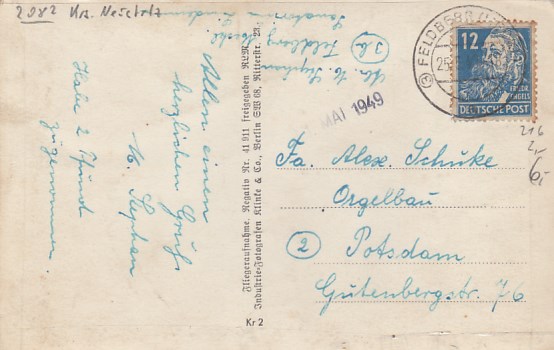 2082 Krs. Neustrelitz
Allen einen
herzlichen Gruß
M. Stephan
Habe 2 Pfund
zugenommen.
M. Stephan
Feldberg
Fliegeraufnahme. Negativ Nr. 41 911 freigegeben RLM.
Industrie-Fotografen Klinke & Co., Berlin SW 68, Ritterstr. 23.
Kr 2
FELDBERG
25
12
FRIEDR.
ENGELS
DEUTSCHE POST
MAI 1949
216
6,-
Fa. Alex. Schuke
Orgelbau
2 Potsdam
Gutenbergstr. 76